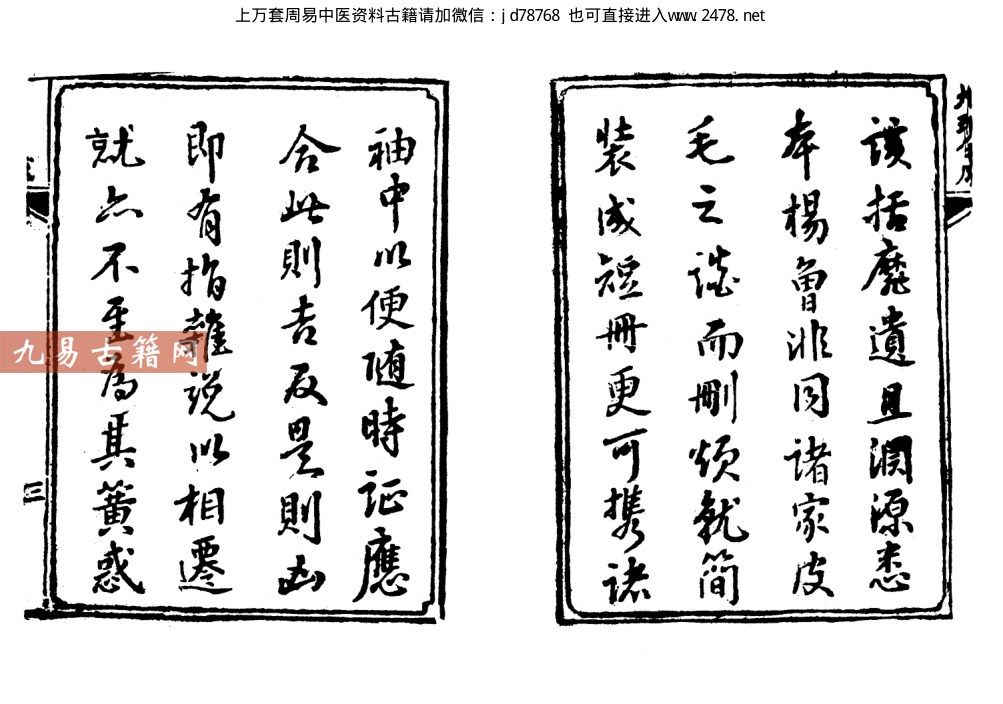 上万套周易中医资料古籍请加微信：jd78768 也可直接进入www.2478.net
該括靡遺且淵源悉
本楊曾非同諸家皮
毛之談而刪煩就簡
裝成短冊更可携諸
袖中以便随時証應
合此則吉反是則凶
即有指雜说以相遷
就亦不至為其簧惑
三
九易古籍网